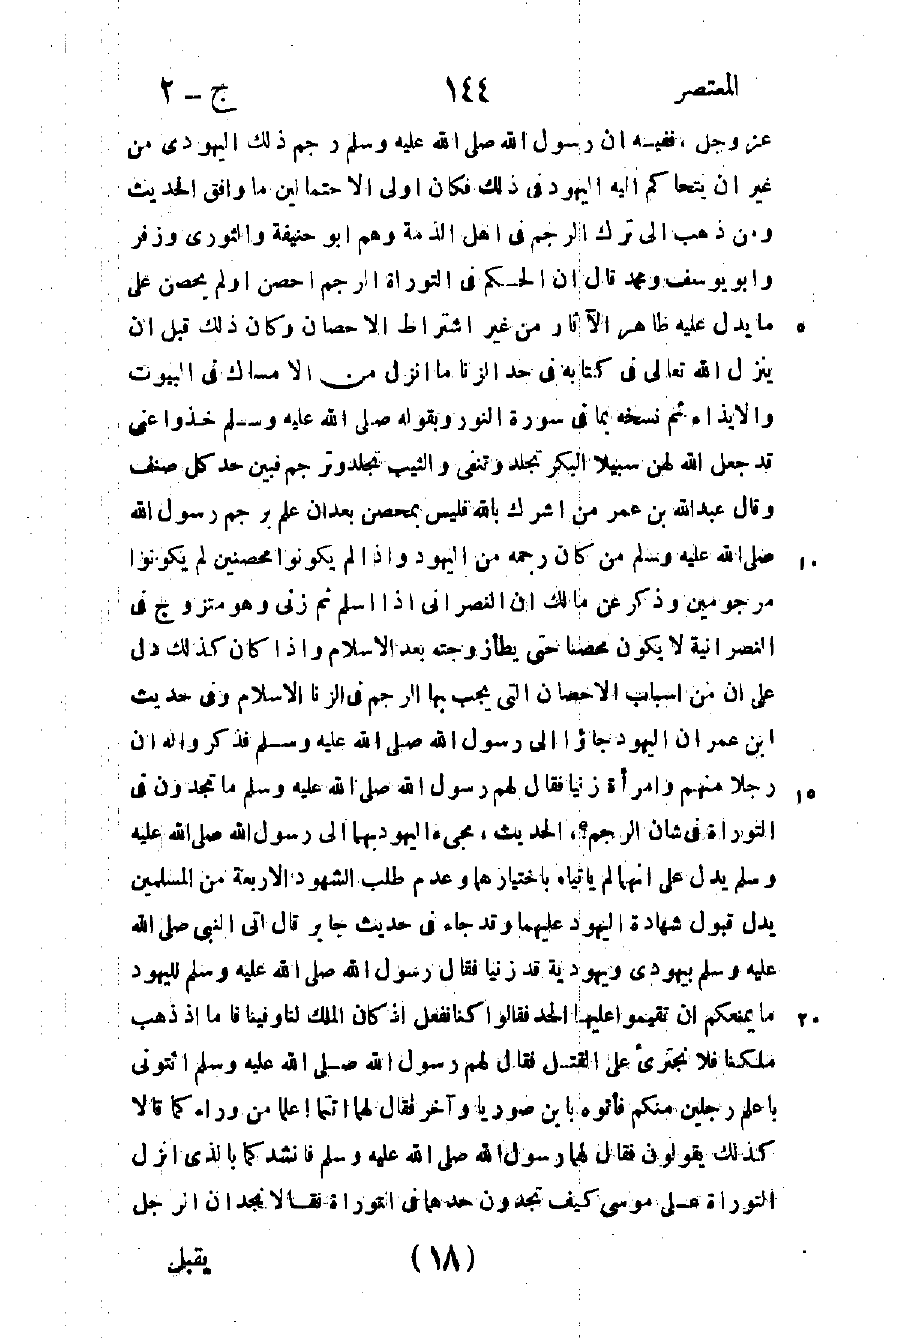 المعتصر ١٤٤ ج - ٢
عز وجل ، ففيه ان رسول الله صلى الله عليه وسلم رجم ذلك اليهودى من
غير ان يتحاكم اليه اليهود فى ذلك فكان اولى الاحتمالين ما وافق الحديث
ومن ذهب الى ترك الرجم فى اهل الذمة وهم ابو حنيفة والثورى وزفر
وابو يوسف ومحمد قال ان الحكم فى التوراة الرجم احصن اولم يحصن على
٥ ما يدل عليه ظاهر الآثار من غير اشتراط الاحصان وكان ذلك قبل ان
ينزل الله تعالى فى كتابه فى حد الزنا ما انزل من الامساك فى البيوت
والايذاء ثم نسخه بما فى سورة النور وبقوله صلى الله عليه وسلم خذوا عنى
قد جعل الله لهن سبيلا البكر تجلد وتنفى والثيب تجلد وترجم فبين حد كل صنف
وقال عبدالله بن عمر من اشرك بالله فليس بمحصن بعد ان علم برجم رسول الله
١٠ صلى الله عليه وسلم من كان رجمه من اليهود واذا لم يكونوا محصنين لم يكونوا
مرجومين وذكر عن مالك ان النصرانى اذا اسلم ثم زنى وهو متزوج فى
النصرانية لا يكون محصنا حتى يطأ زوجته بعد الاسلام واذا كان كذلك دل
على ان من اسباب الاحصان التى يجب بها الرجم فى الزنا الاسلام وفى حديث
ابن عمر ان اليهود جاؤا الى رسول الله صلى الله عليه وسلم فذكر واله ان
١٥ رجلا منهم وامرأة زنيا فقال لهم رسول الله صلى الله عليه وسلم ما تجدون فى
التوراة فى شان الرجم؟، الحديث ، مجىء اليهود بهما الى رسول الله صلى الله عليه
وسلم يدل على انهما لم ياتياه باختيارهما وعدم طلب الشهود الاربعة من المسلمين
يدل قبول شهادة اليهود عليهما وقد جاء فى حديث جابر قال اتى النبى صلى الله
عليه وسلم بيهودى ويهودية قد زنيا فقال رسول الله صلى الله عليه وسلم لليهود
٢٠ ما يمنعكم ان تقيموا عليهما الحد فقالوا كنا نفعل اذ كان الملك لنا وفينا فاما اذ ذهب
ملكنا فلا نجترئ على القتل فقال لهم رسول الله صلى الله عليه وسلم ائتونى
باعلم رجلين منكم فأتوه بابن صوريا وآخر فقال لهما انتما اعلم من وراء كما قالا
كذلك يقولون فقال لهما رسول الله صلى الله عليه وسلم فانشدكما بالذى انزل
التوراة على موسى كيف تجدون حدهما فى التوراة فقالا نجد ان الرجل
(١٨) يقبل